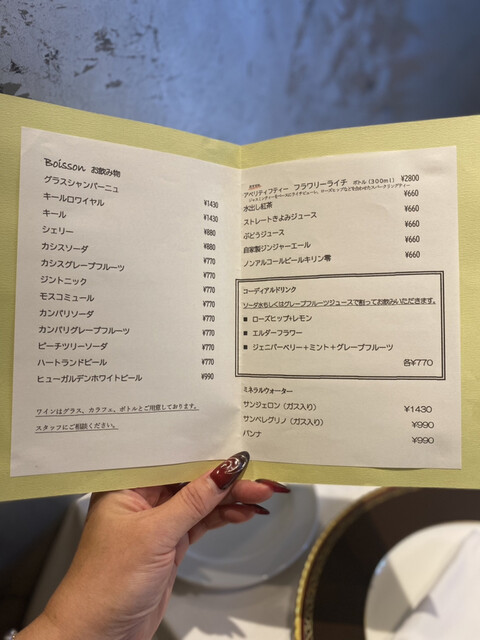 Boisson お飲み物
グラスシャンパーニュ ¥1430
キールロワイヤル ¥1430
キール ¥880
シェリー ¥880
カシスソーダ ¥770
カシスグレープフルーツ ¥770
ジントニック ¥770
モスコミュール ¥770
カンパリソーダ ¥770
カンパリグレープフルーツ ¥770
ピーチツリーソーダ ¥770
ハートランドビール ¥770
ヒューガルデンホワイトビール ¥990
ワインはグラス、カラフェ、ボトルとご用意しております。
スタッフにご相談ください。
アペリティフティー フラワリーライチ ボトル(300ml) ¥2800
ジャスミンティーをベースにライチピューレ、ローズヒップなどを合わせたスパークリングティー
水出し紅茶 ¥660
ストレートきよみジュース ¥660
ぶどうジュース ¥660
自家製ジンジャーエール ¥660
ノンアルコールビールキリン零 ¥660
コーディアルドリンク
ソーダ水もしくはグレープフルーツジュースで割ってお飲みいただきます。
■ ローズヒップ+レモン
■ エルダーフラワー
■ ジェニパーベリー+ミント+グレープフルーツ
各¥770
ミネラルウォーター
サンジェロン(ガス入り) ¥1430
サンペレグリノ(ガス入り) ¥990
パンナ ¥990